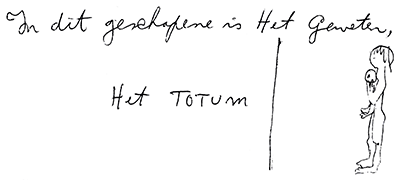 In dit geschapene is Het Geweten,
Het TOTUM